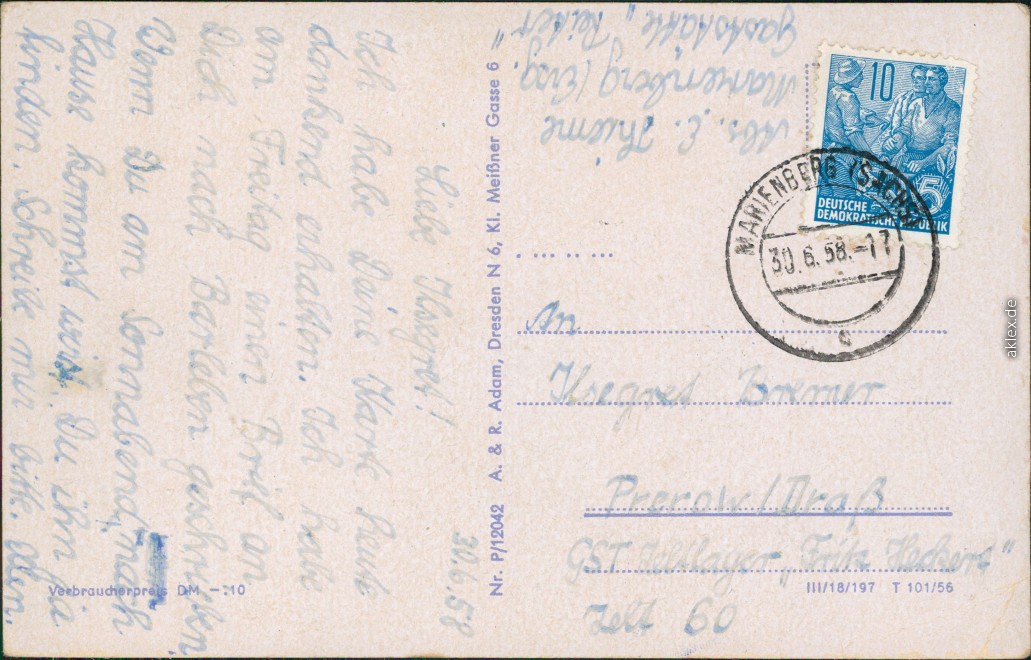 30.6.58
Liebe Ilsegret!
Ich habe Deine Karte heute
dankend erhalten. Ich habe
am Freitag einen Brief an
Dich nach Barleben geschrieben
Wenn Du am Sonnabend nach
Hause kommst wirst Du ihn ja
finden. Schreib mir bitte
Nr. P/12042 A. & R. Adam, Dresden N 6, Kl. Meißner Gasse 6
Verbraucherpreis DM -.10
Abs. E. Thieme
Marienberg / Erzg.
Gaststätte
10
5
DEUTSCHE
DEMOKRATISCHE REPUBLIK
MARIENBERG (SACHS)
30.6.58.-17
c
An
Bremer
Prerow / Draß
GST "Fritz Heckert"
Zelt 60
III/18/197 T 101/56
aklex.de